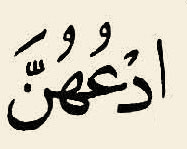 ادْعُهُنَّ